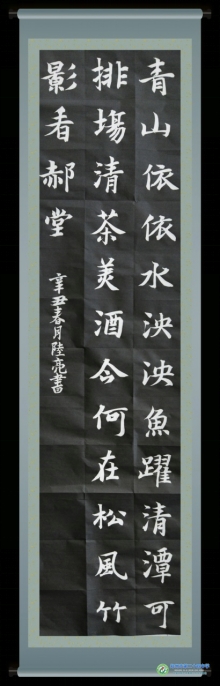 青山依依水泱泱魚躍清潭可
排塲清茶美酒今何在松風竹
影看郝堂
辛丑春月陸亮書